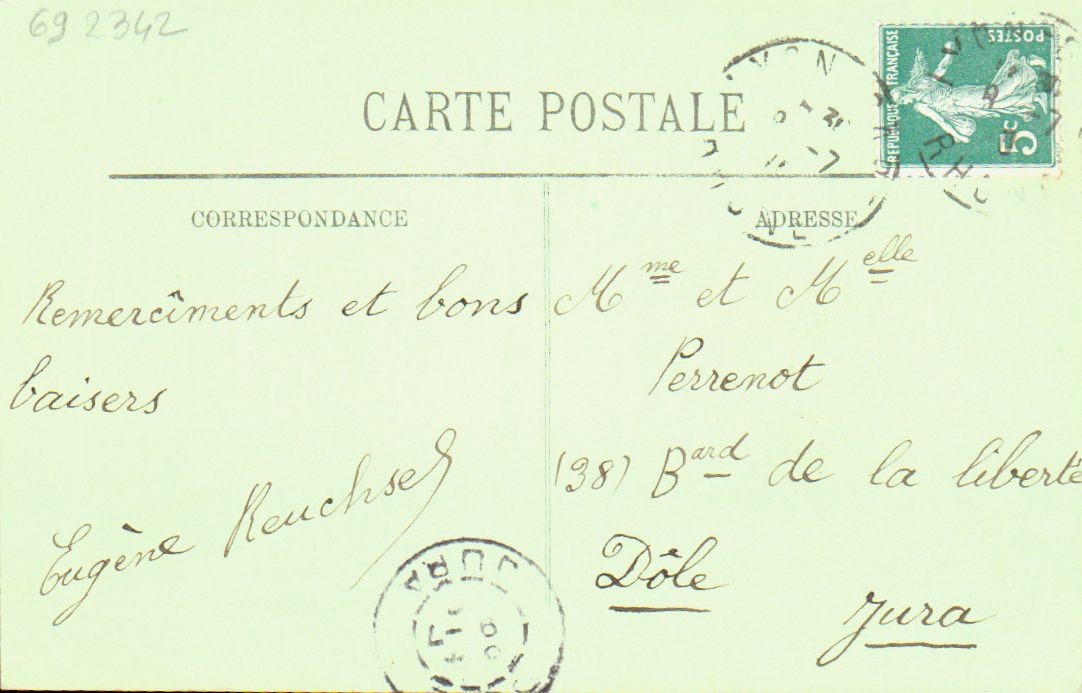 69 2342
CARTE POSTALE
RÉPUBLIQUE FRANÇAISE
POSTES
5c
LYON
RHONE
CORRESPONDANCE
Remercîments et bons
baisers
Eugène Reuchsel
ADRESSE
Mme et Melle
Perrenot
(38) Bard de la liberté
Dôle
Jura
JURA